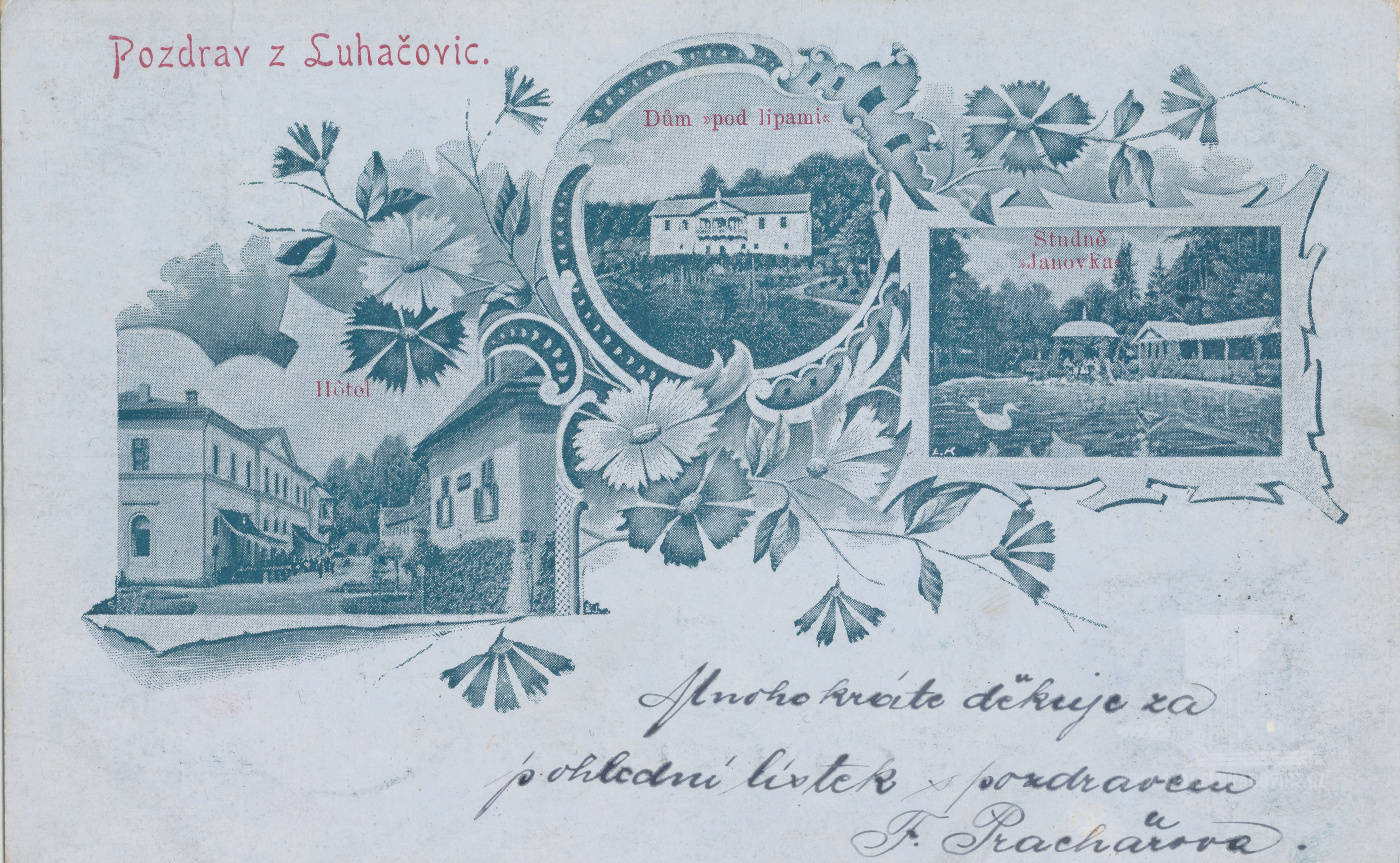 Pozdrav z Luhačovic.
Dům »pod lipami«
Studně
»Janovka«
Hôtel
L.K
Mnohokráte děkuje za
pohlední lístek s pozdravem
F. Prachařova.